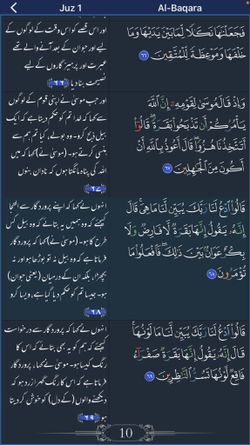 Juz 1
Al-Baqara
فَجَعَلْنَٰهَا نَكَٰلًا لِّمَا بَيْنَ يَدَيْهَا وَمَا
خَلْفَهَا وَمَوْعِظَةً لِّلْمُتَّقِينَ ٦٦
اور اس قصے کو اس وقت کے لوگوں کے
لیے اور جو ان کے بعد آنے والے تھے
عبرت اور پرہیز گاروں کے لیے
نصیحت بنا دیا ٦٦
وَإِذْ قَالَ مُوسَىٰ لِقَوْمِهِۦٓ إِنَّ ٱللَّهَ
يَأْمُرُكُمْ أَن تَذْبَحُوا۟ بَقَرَةً ۖ قَالُوٓا۟
أَتَتَّخِذُنَا هُزُوًا ۖ قَالَ أَعُوذُ بِٱللَّهِ أَنْ
أَكُونَ مِنَ ٱلْجَٰهِلِينَ ٦٧
اور جب موسیٰ نے اپنی قوم کے لوگوں
سے کہا کہ خدا تم کو حکم دیتا ہے کہ ایک
بیل ذبح کرو۔ وہ بولے، کیا تم ہم سے
ہنسی کرتے ہو۔ (موسیٰ نے) کہا کہ میں
الله کی پناہ مانگتا ہوں کہ نادان بنوں
٦٧
قَالُوا۟ ٱدْعُ لَنَا رَبَّكَ يُبَيِّن لَّنَا مَا هِىَ ۚ قَالَ
إِنَّهُۥ يَقُولُ إِنَّهَا بَقَرَةٌ لَّا فَارِضٌ وَلَا
بِكْرٌ عَوَانٌۢ بَيْنَ ذَٰلِكَ ۖ فَٱفْعَلُوا۟ مَا
تُؤْمَرُونَ ٦٨
انہوں نے کہا کہ اپنے پروردگار سے التجا
کیجئے کہ وہ ہمیں یہ بتائے کہ وہ بیل کس
طرح کا ہو۔ (موسیٰ نے) کہا کہ پروردگار
فرماتا ہے کہ وہ بیل نہ تو بوڑھا ہو اور نہ
بچھڑا، بلکہ ان کے درمیان (یعنی جوان)
ہو۔ جیسا تم کو حکم دیا گیا ہے، ویسا کرو
٦٨
قَالُوا۟ ٱدْعُ لَنَا رَبَّكَ يُبَيِّن لَّنَا مَا لَوْنُهَا ۚ
قَالَ إِنَّهُۥ يَقُولُ إِنَّهَا بَقَرَةٌ صَفْرَآءُ
فَاقِعٌ لَّوْنُهَا تَسُرُّ ٱلنَّٰظِرِينَ ٦٩
انہوں نے کہا کہ پروردگار سے درخواست
کیجئے کہ ہم کو یہ بھی بتائے کہ اس کا
رنگ کیسا ہو۔ موسیٰ نے کہا ، پروردگار
فرماتا ہے کہ اس کا رنگ گہرا زرد ہو کہ
دیکھنے والوں (کے دل) کو خوش کر دیتا
ہو ٦٩
10